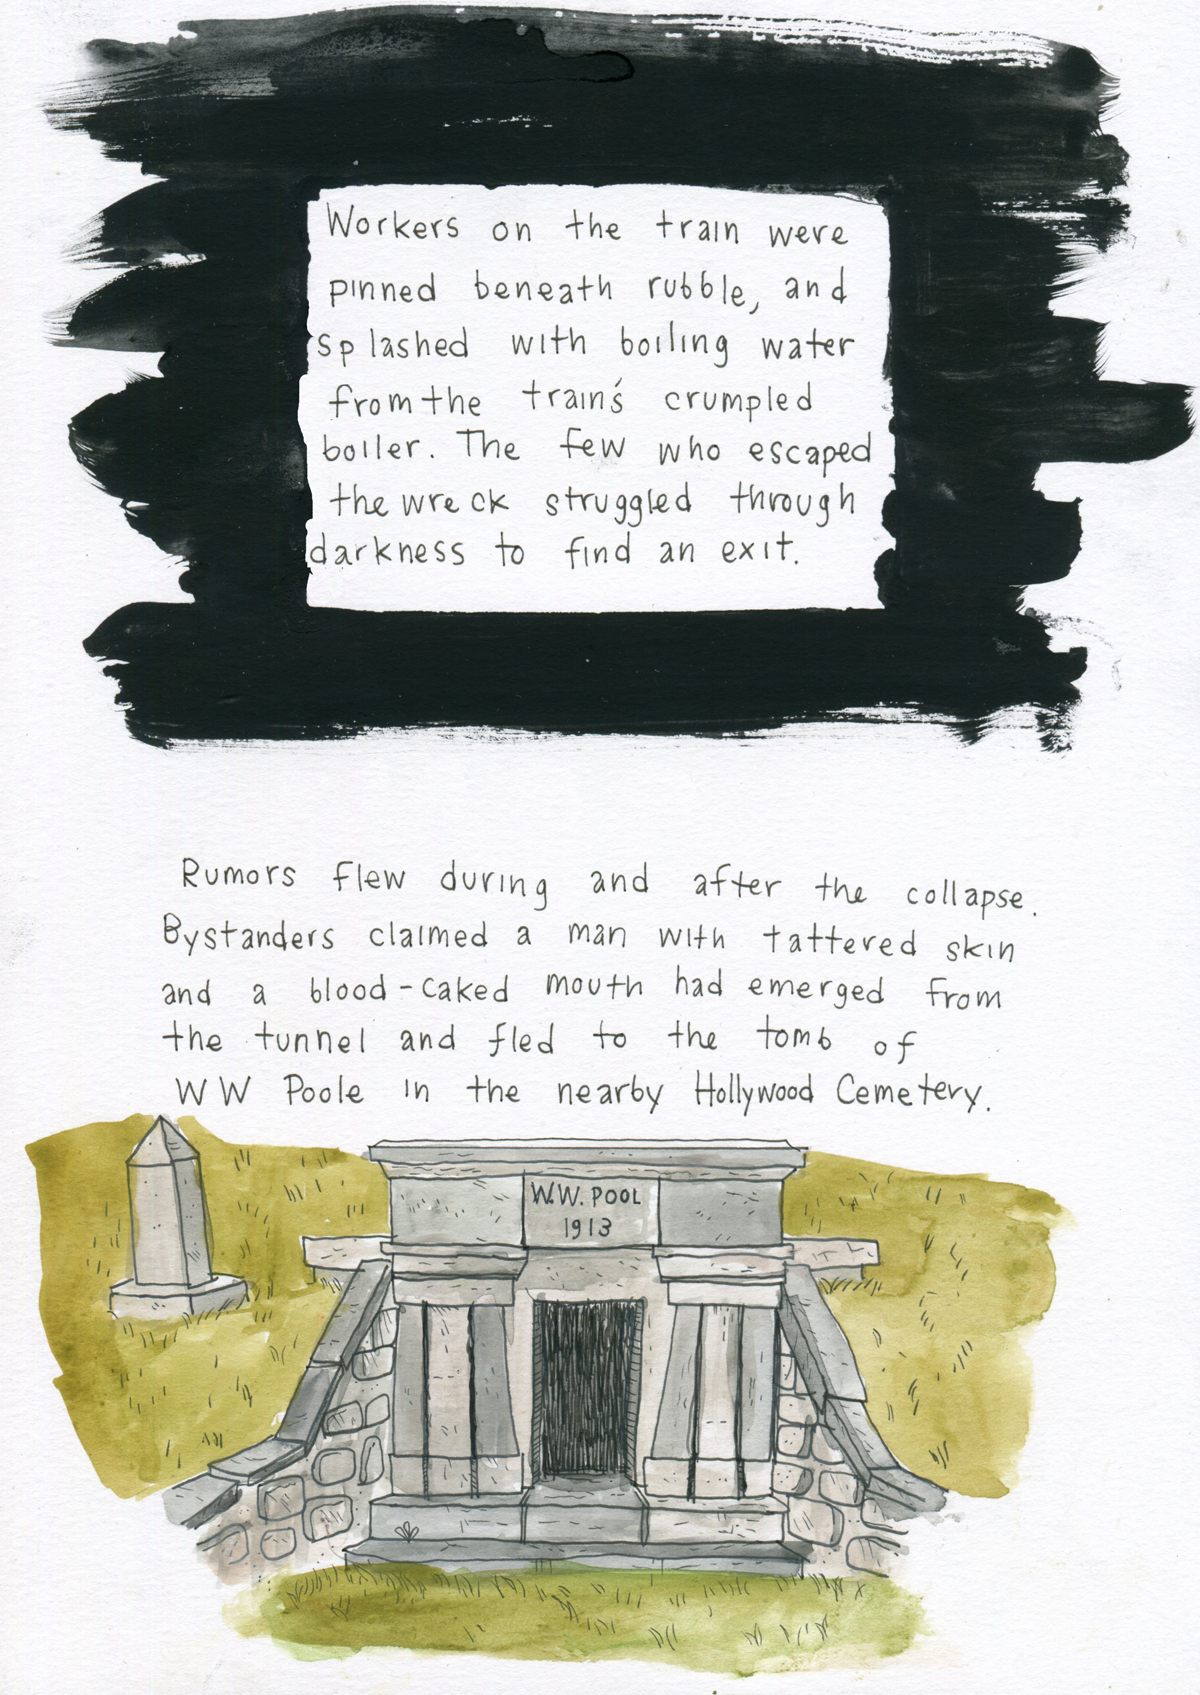 Workers on the train were
pinned beneath rubble, and
splashed with boiling water
from the train's crumpled
boiler. The few who escaped
the wreck struggled through
darkness to find an exit.
Rumors flew during and after the collapse.
Bystanders claimed a man with tattered skin
and a blood-caked mouth had emerged from
the tunnel and fled to the tomb of
WW Poole in the nearby Hollywood Cemetery.
W.W. POOL
1913